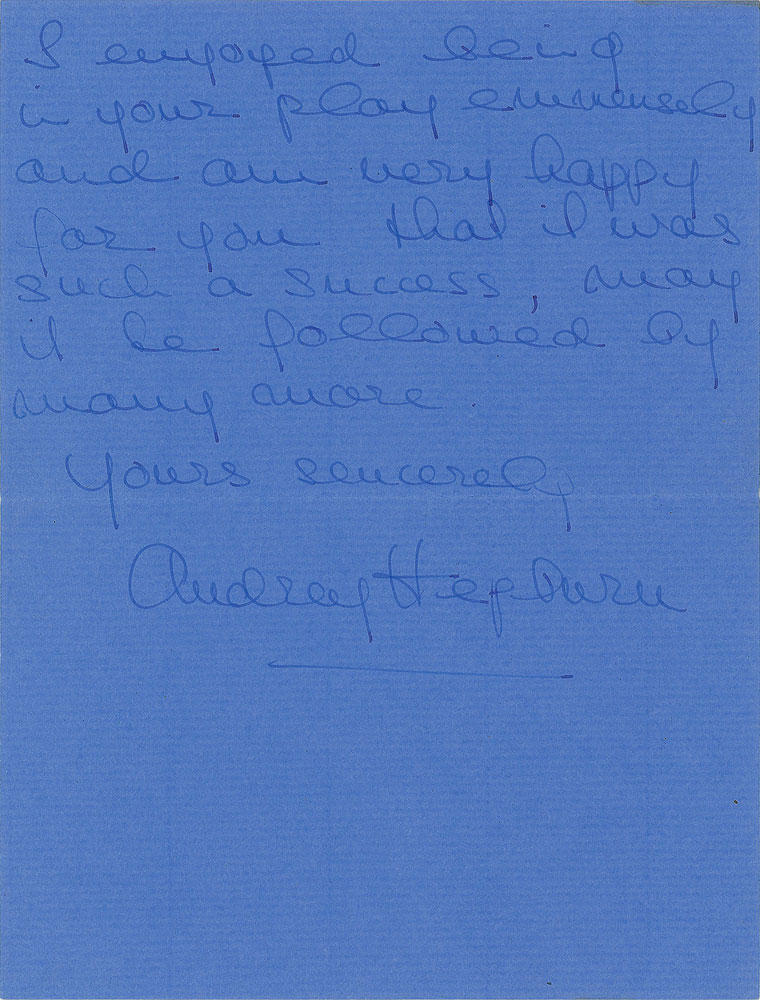 I enjoyed being
in your play immensely
and am very happy
for you that it was
such a success, may
it be followed by
many more.
Yours sincerely
Audrey Hepburn